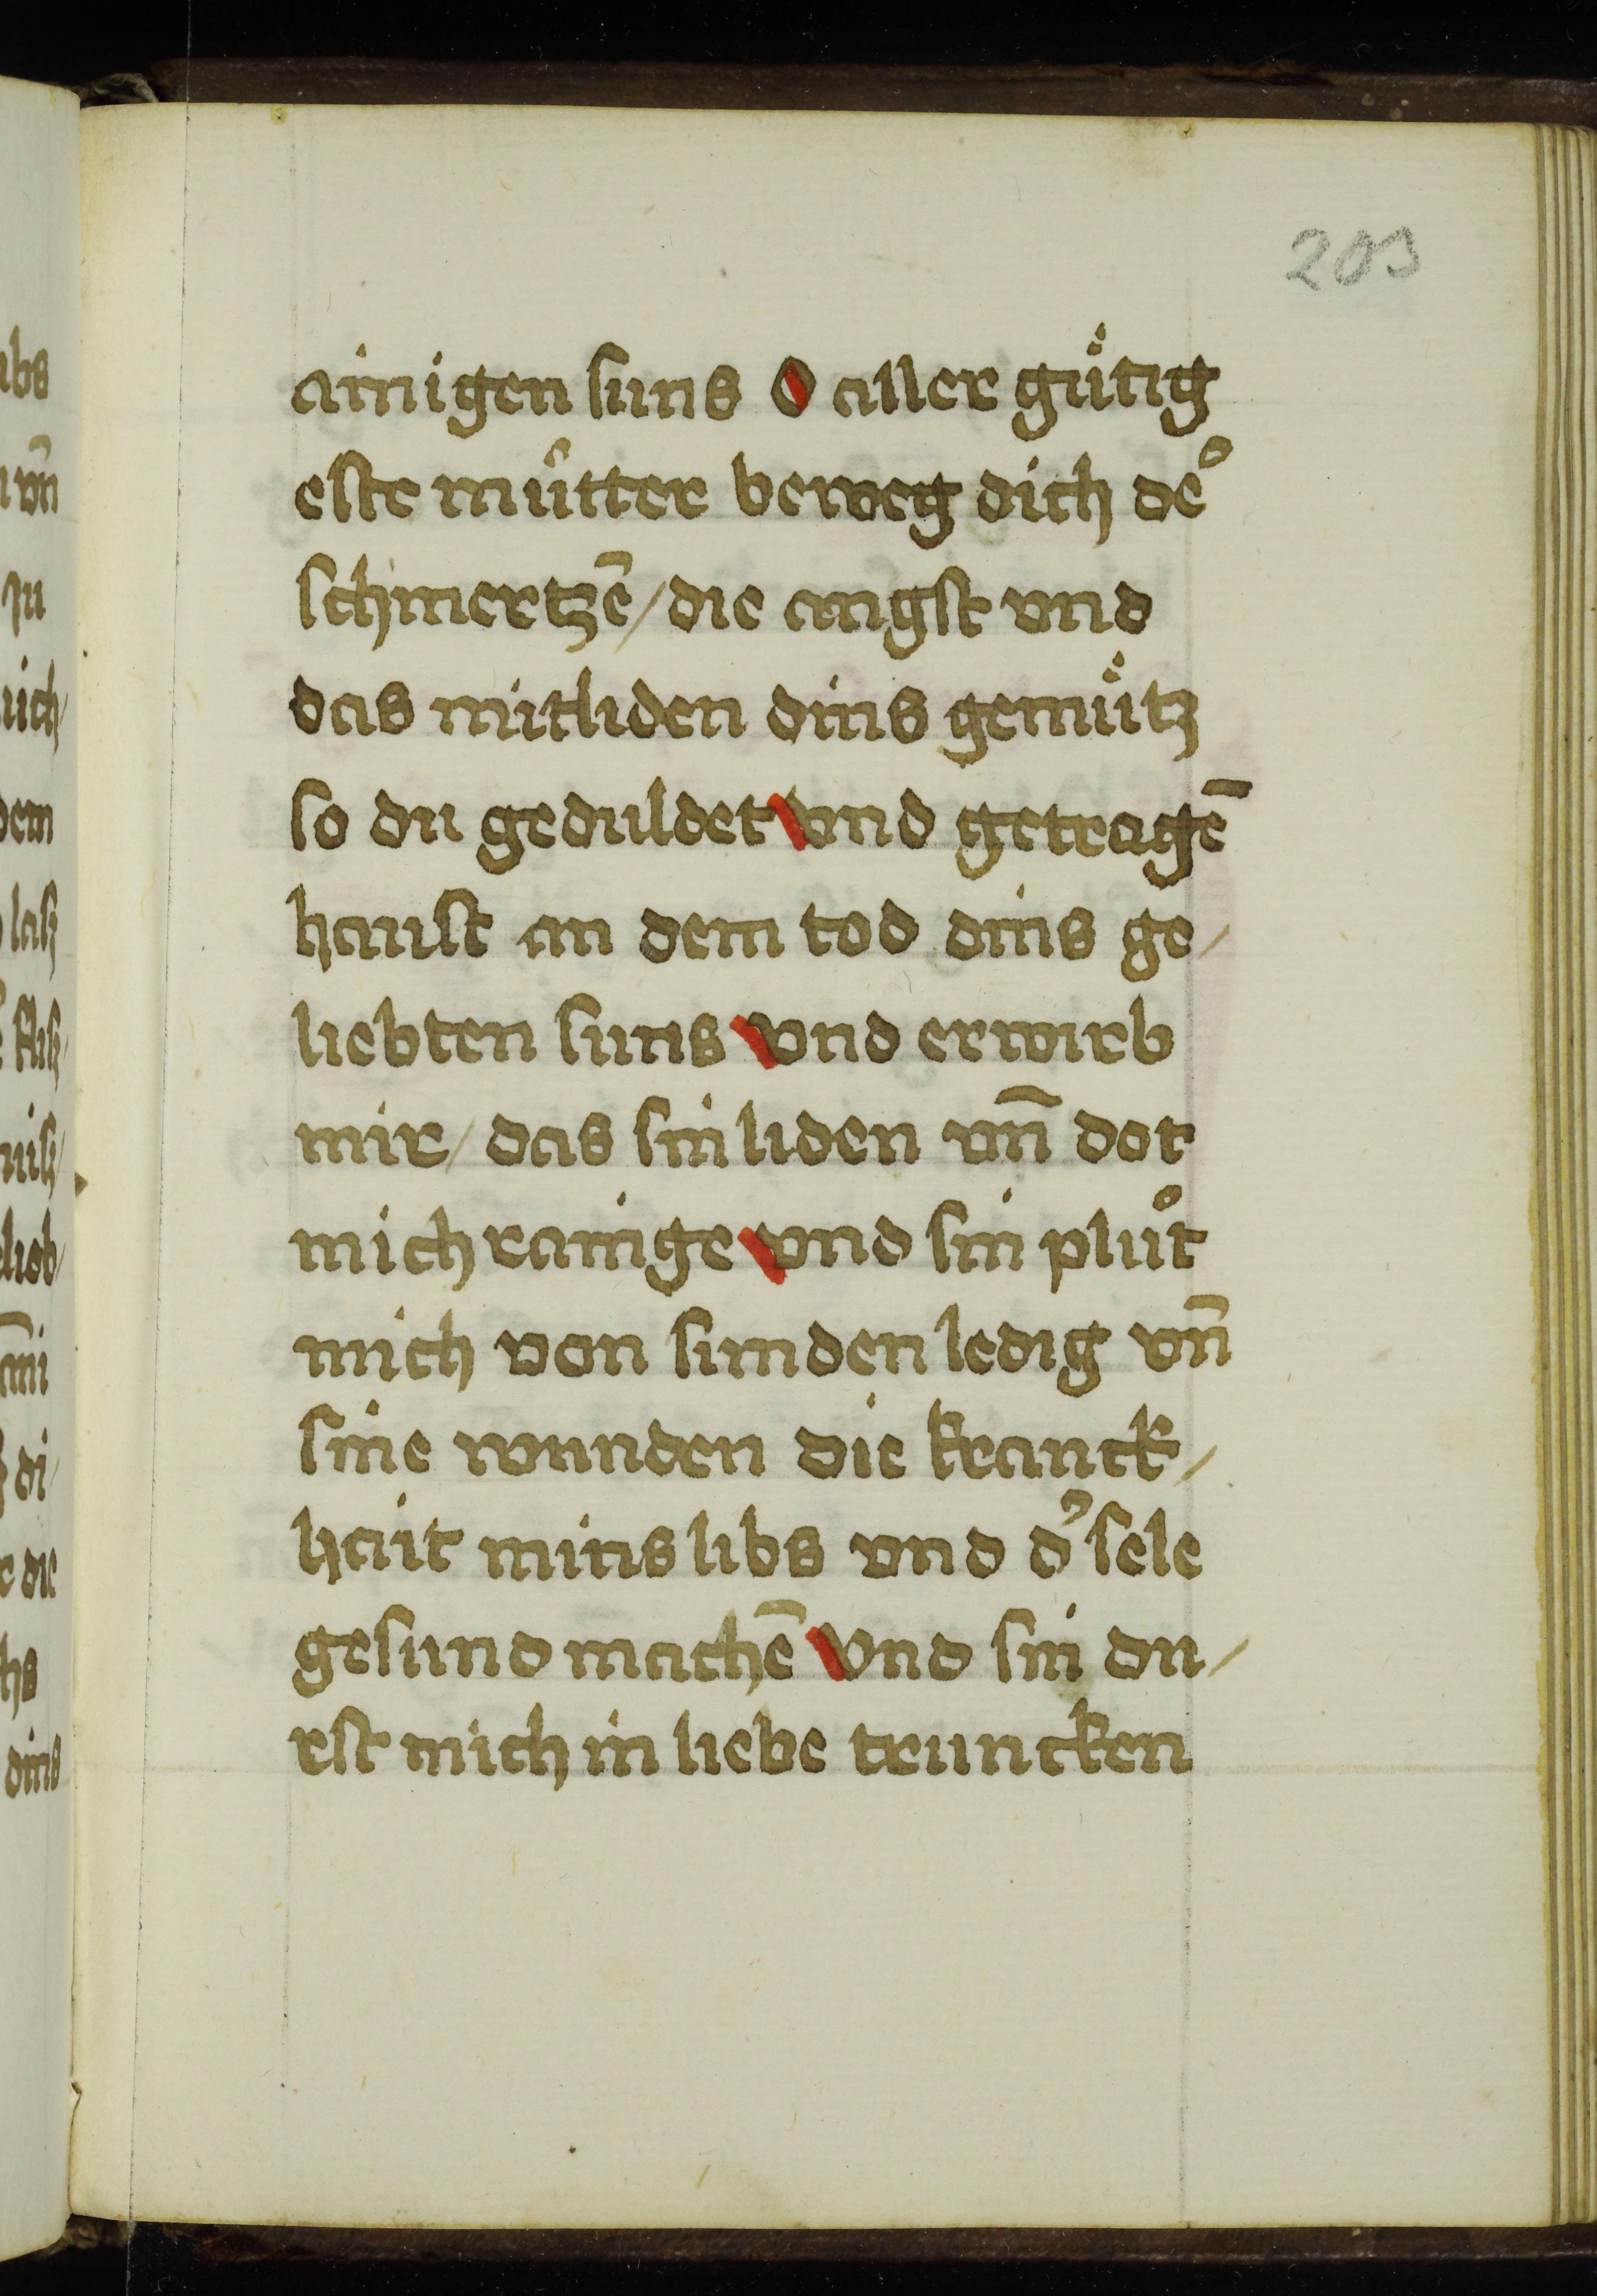 203
ainigen suns O aller gu̇̈tig
este mu̇tter beweg dich de᷎ͦ
schmertzē / die angst vnd
das mitliden dins gemu̇̈tz
so du geduldet vnd getragē
haust an dem tod dins ge/
liebten suns vnd erwirb
mir / das sin liden vn̄ dot
mich rainige vnd sin plůt
mich von sunden ledig vn̄
sine wunden die kranck/
hait mins libs vnd d' sele
gesund machē Vnd sin du/
rst mich in liebe truncken